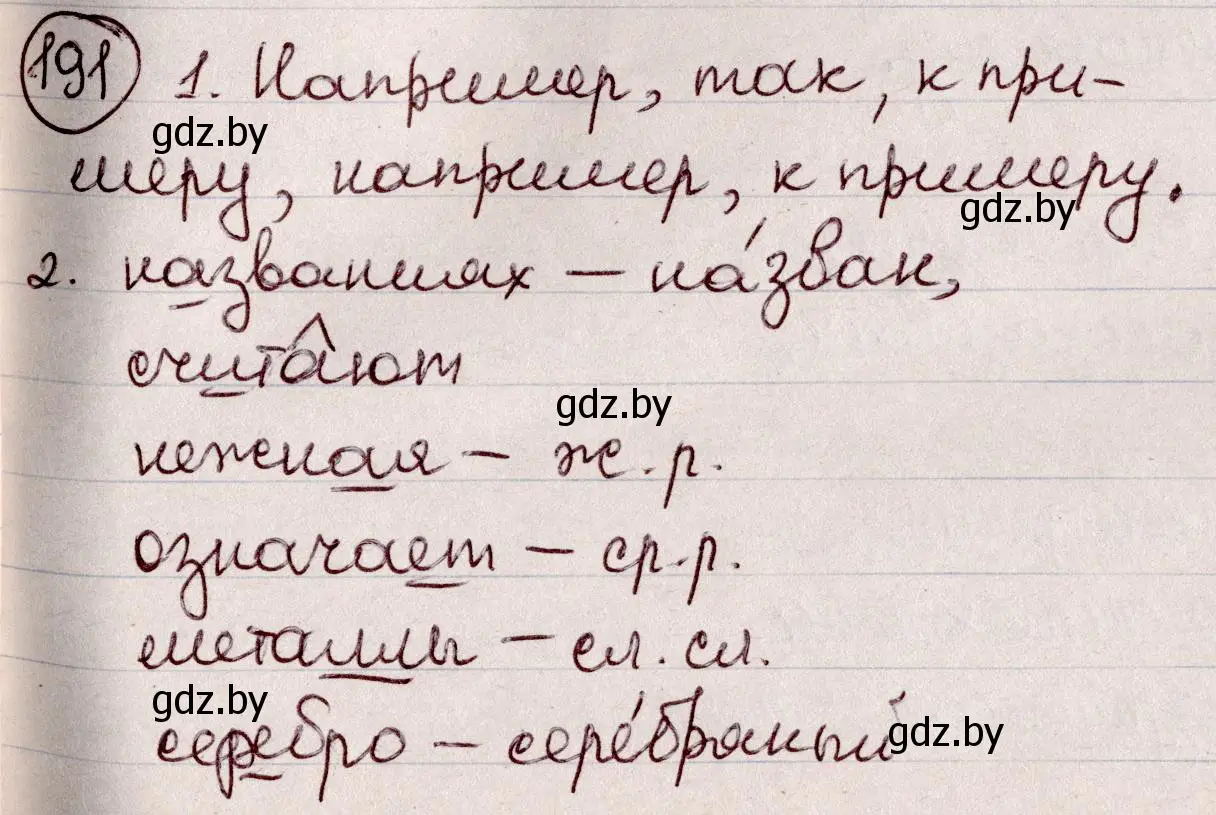 191 1. Например, так, к при-
gdz.by
меру, например, к примеру.
gdz.by
2. названиях – на́зван,
считают
gdz.by
нежная – ж.р.
означает – ср.р.
металлы – сл. сл.
gdz.by
серебро – сере́бряный
gdz.by